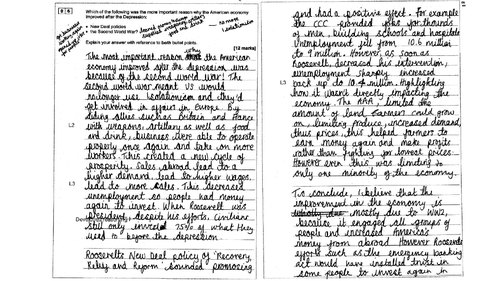 0 6
Which of the following was the more important reason why the American economy improved after the Depression:
• New Deal policies
• the Second World War?
Explain your answer with reference to both bullet points.
[12 marks]
The most important reason why the American
economy improved after the depression was
because of the second world war! The
second world war meant US would
no longer use Isolationism and they'd
get involved in affairs in Europe. By
aiding allies such as Britain and France
with weapons, artillary as well as food
L2
and drink, business were able to operate
properly once again and take on more
workers. This created a new cycle of
prosperity. Sales abroad lead to a
higher demand, lead to higher wages,
L3
lead to more sales. This decreased
unemployment so people had money
again to invest. When Roosevelt was
president, despite his efforts, civilians
still only invested 75% of what they
used to before the depression.
Roosevelts New Deal policy of 'Recovery,
Relief and Reform' sounded promising
and had a positive effect. For example
the CCC provided jobs for thousands
of men, building schools and hospitals
unemployment fell from 10.6 million
to 9 million. However, as soon as
Roosevelt decreased his intervention,
unemployment sharply increased
L3
back up to 10.4 million. Highlighting
how it wasn't directly impacting the
economy. The AAA, limited the
amount of land farmers could grow
on, limiting produce, increased demand,
thus prices, this helped farmers to
earn money again and make profits
rather than fighting for lowest prices.
However even this was limiting to
only one minority of the economy.
To conclude, I believe that the
improvement in the economy is
mostly due to WW2,
because it engaged all genres of
people and increased America's
money from abroad. However Roosevelts
efforts such as the emergency banking
act would have installed trust in
some people to invest again in